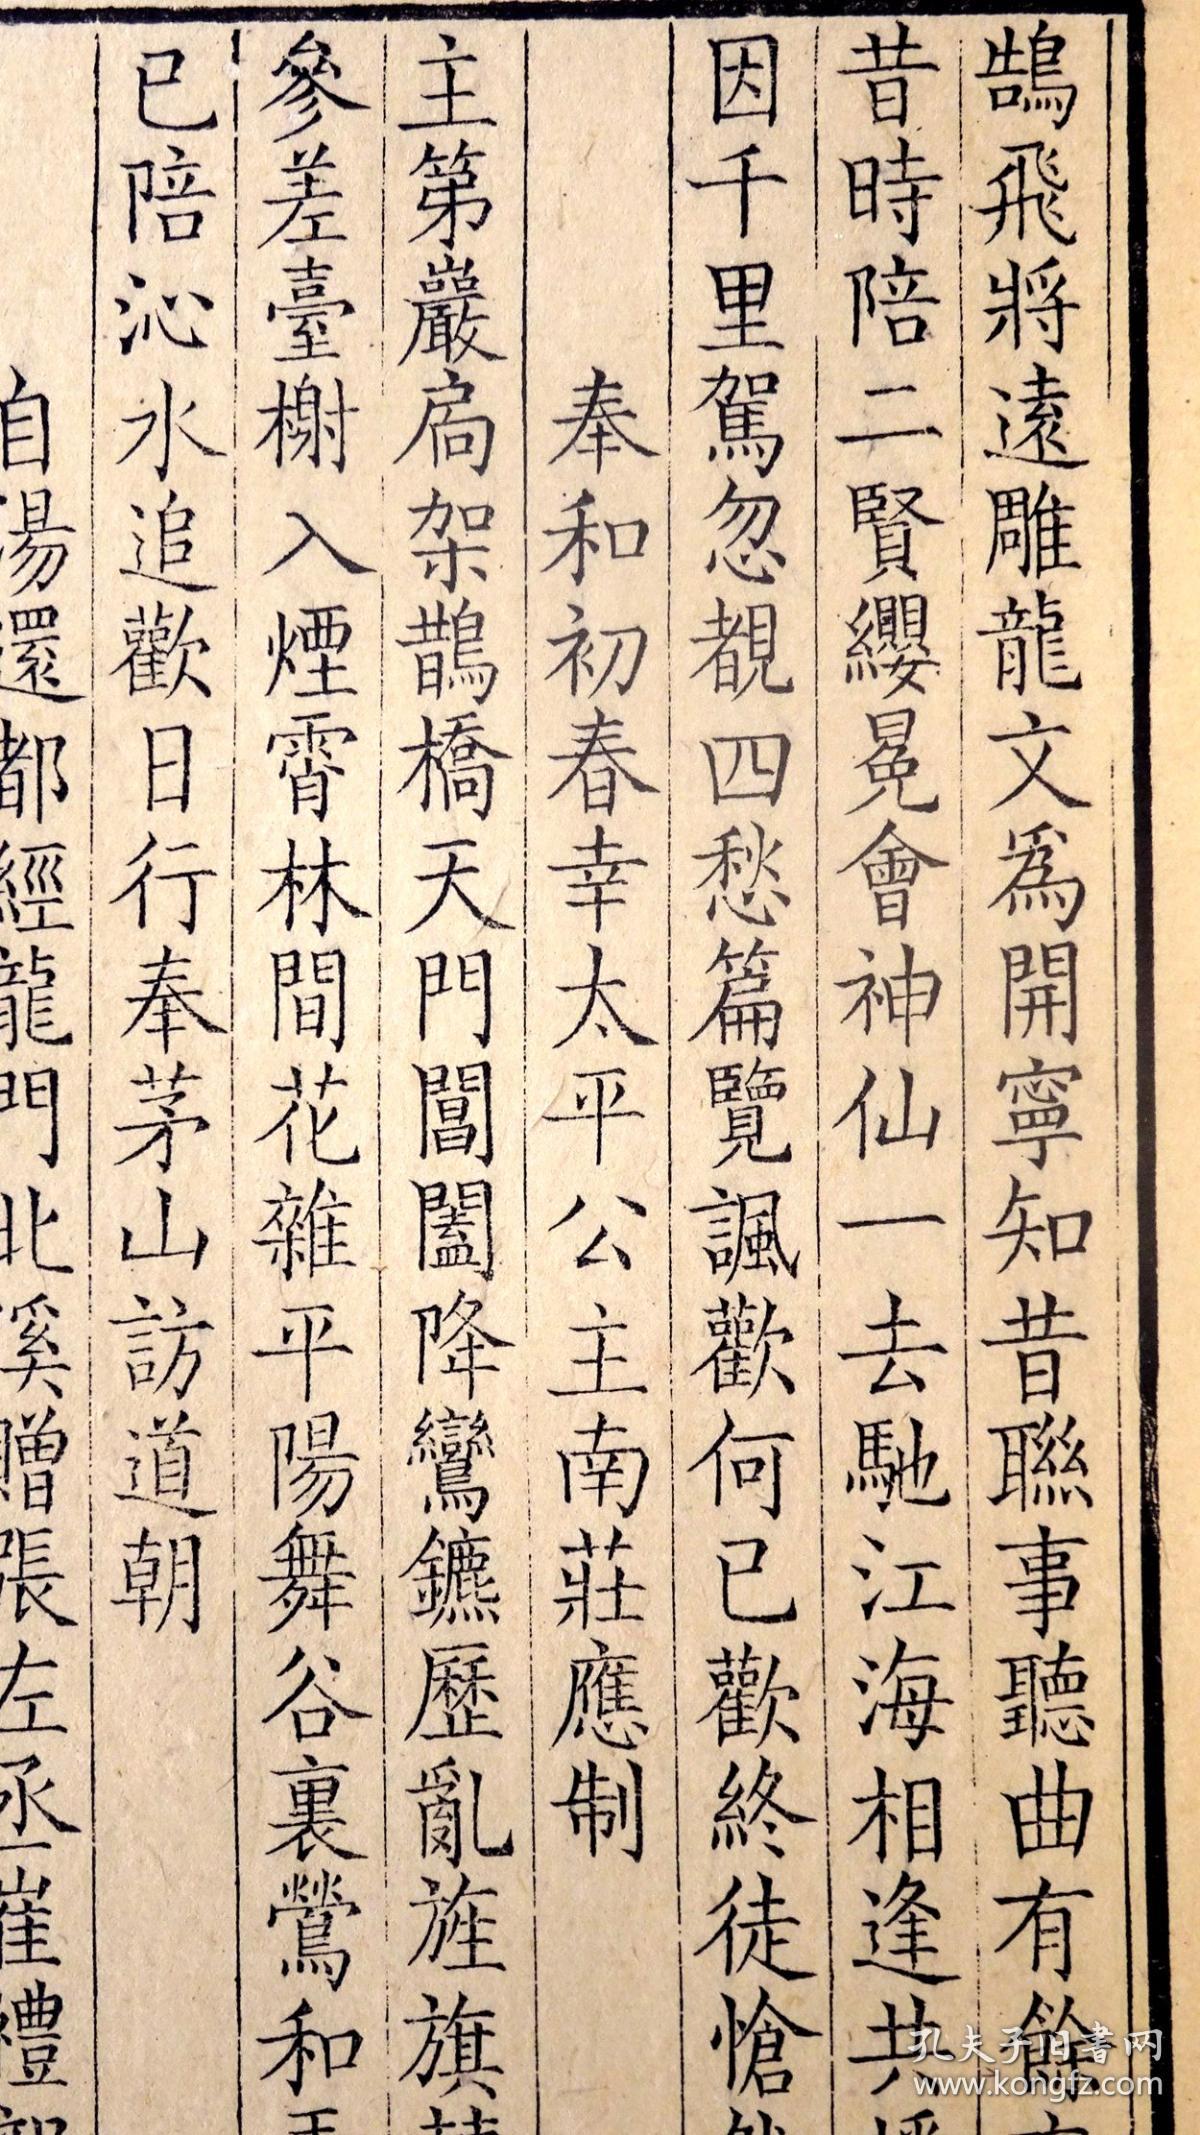 鵠飛將遠雕龍文爲開寧知昔聯事聽曲有餘
昔時陪二賢纓冕會神仙一去馳江海相逢共
因千里駕忽覩四愁篇覽諷歡何已歡終徒愴
奉和初春幸太平公主南莊應制
主第巖扃架鵲橋天門閶闔降鸞鑣歷亂旌旗
參差臺榭入煙霄林間花雜平陽舞谷裏鶯和
已陪沁水追歡日行奉茅山訪道朝
自湯還都經龍門北溪贈張左丞崔禮部
孔夫子旧书网
www.kongfz.com